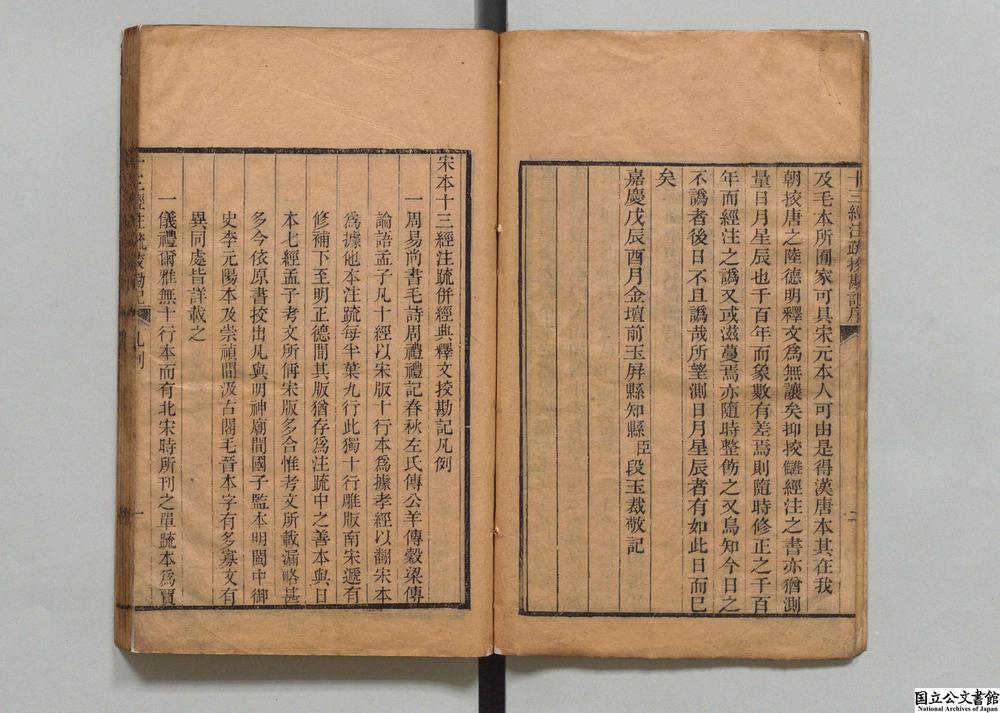 十三經注疏挍勘記序
及毛本所囿家可具宋元本人可由是得漢唐本其在我
朝挍唐之陸德明釋文爲無讓矣抑挍讎經注之書亦猶測
量日月星辰也千百年而象數有差焉則隨時修正之千百
年而經注之譌又或滋蔓焉亦隨時整飭之又烏知今日之
不譌者後日不且譌哉所筌測日月星辰者有如此日而已
矣
嘉慶戊辰酉月金壇前玉屏縣知縣臣段玉裁敬記
二
宋本十三經注疏併經典釋文挍勘記凡例
一周易尚書毛詩周禮禮記春秋左氏傳公羊傳穀梁傳
論語孟子凡十經以宋版十行本爲據孝經以翻宋本
爲據他本注疏每半葉九行此獨十行雕版南宋遞有
修補下至明正德間其版猶存爲注疏中之善本與日
本七經孟子考文所偁宋版多合惟考文所載漏略甚
多今依原書挍出凡與明神廟間國子監本明閩中御
史李元陽本及崇禎間汲古閣毛晉本字有多寡文有
異同處皆詳載之
一儀禮爾雅無十行本而有北宋時所刊之單疏本爲賈
十三經注疏挍勘記
凡例
一
国立公文書館
National Archives of Japan